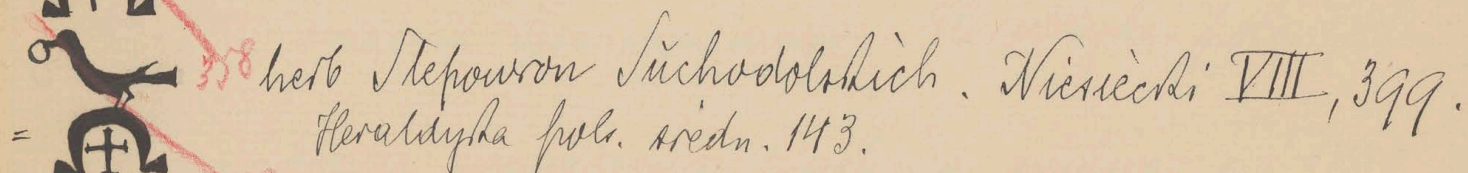 358 herb Ślepowron Suchodolskich. Niesiecki VIII, 399.
= Heraldyka pols. średn. 143.